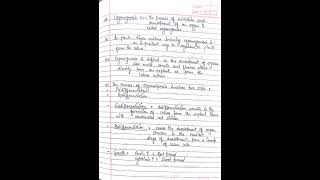 Organogenesis is the process of initiation and
development of an organ is
called organogenesis.
In plant tissue culture inducing organogenesis is
an important way to regenerate plants
from the culture
Organogenesis is defined as the development of organs
like shoots and flowers either
directly from an explant or from the
callus culture
The process of organogenesis involves two steps :
Dedifferentiation
Redifferentiation
Dedifferentiation : Dedifferentiation
formation of callus from the explant tissue
with cell division
Redifferentiation : means the development of organ
structure in the nearest
stage of development from a
of callus cells
Growth : Auxin ↑ : Root formed
Cytokinin ↑ : Shoot formed